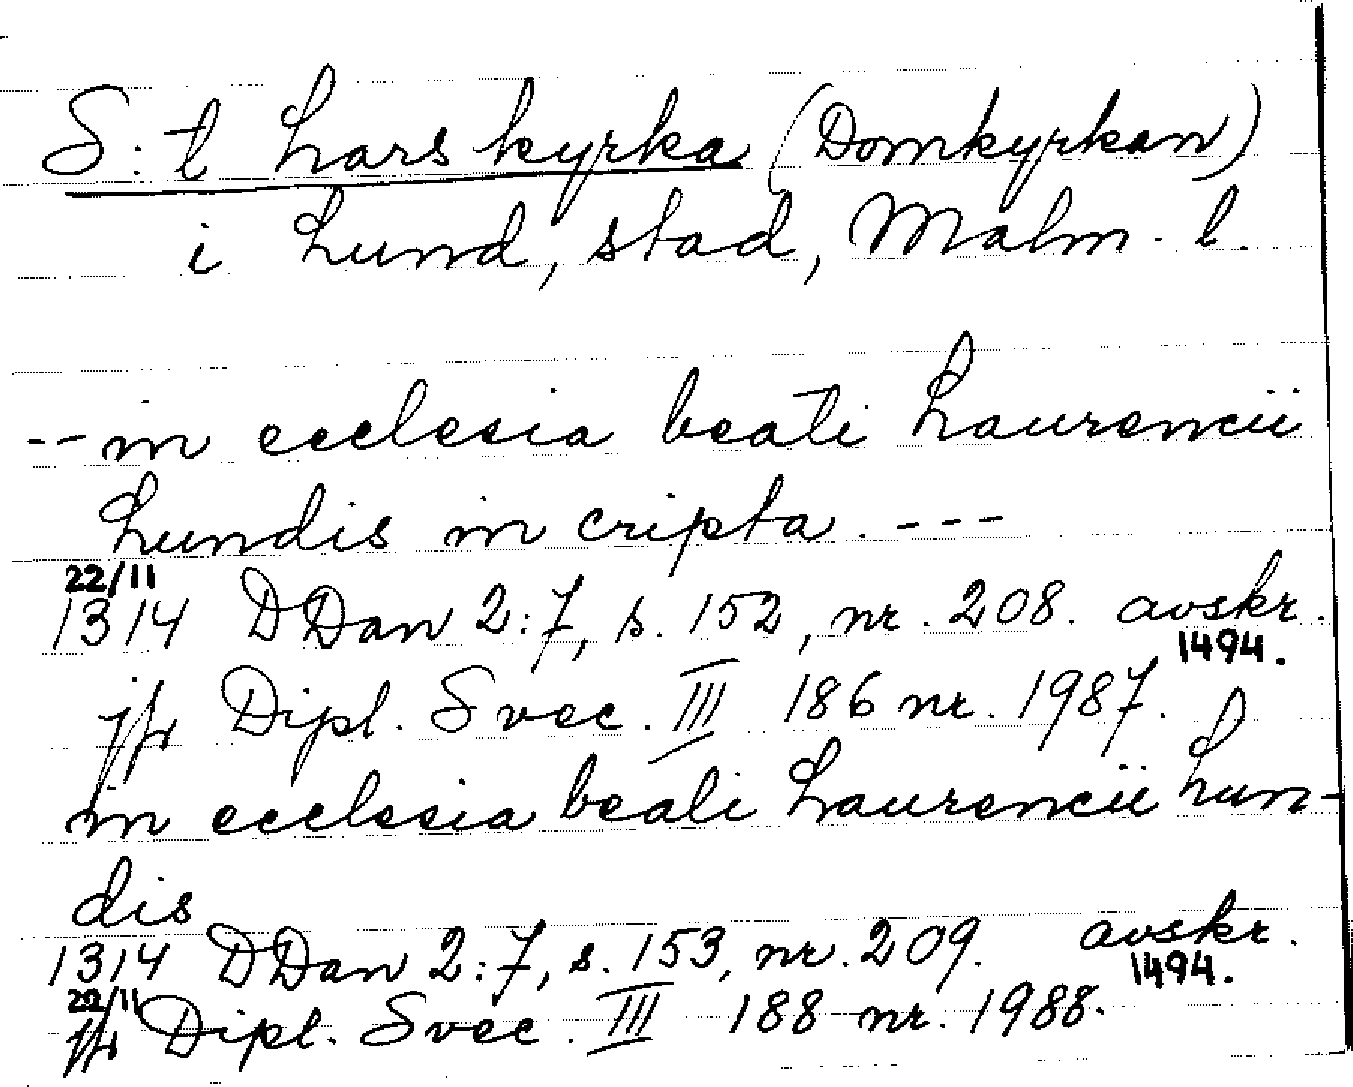 S:t Lars kyrka (Domkyrkan)
i Lund, stad, Malm. l.
-- in ecclesia beati Laurencii
Lundis in cripta. ---
22/11
1314 DDan 2:7, s. 152, nr. 208. avskr.
1494.
jfr Dipl. Svec. III 186 nr. 1987.
in ecclesia beati Laurencii Lun-
dis
1314 DDan 2:7, s. 153, nr. 209. avskr.
22/11 1494.
jfr Dipl. Svec. III 188 nr. 1988.